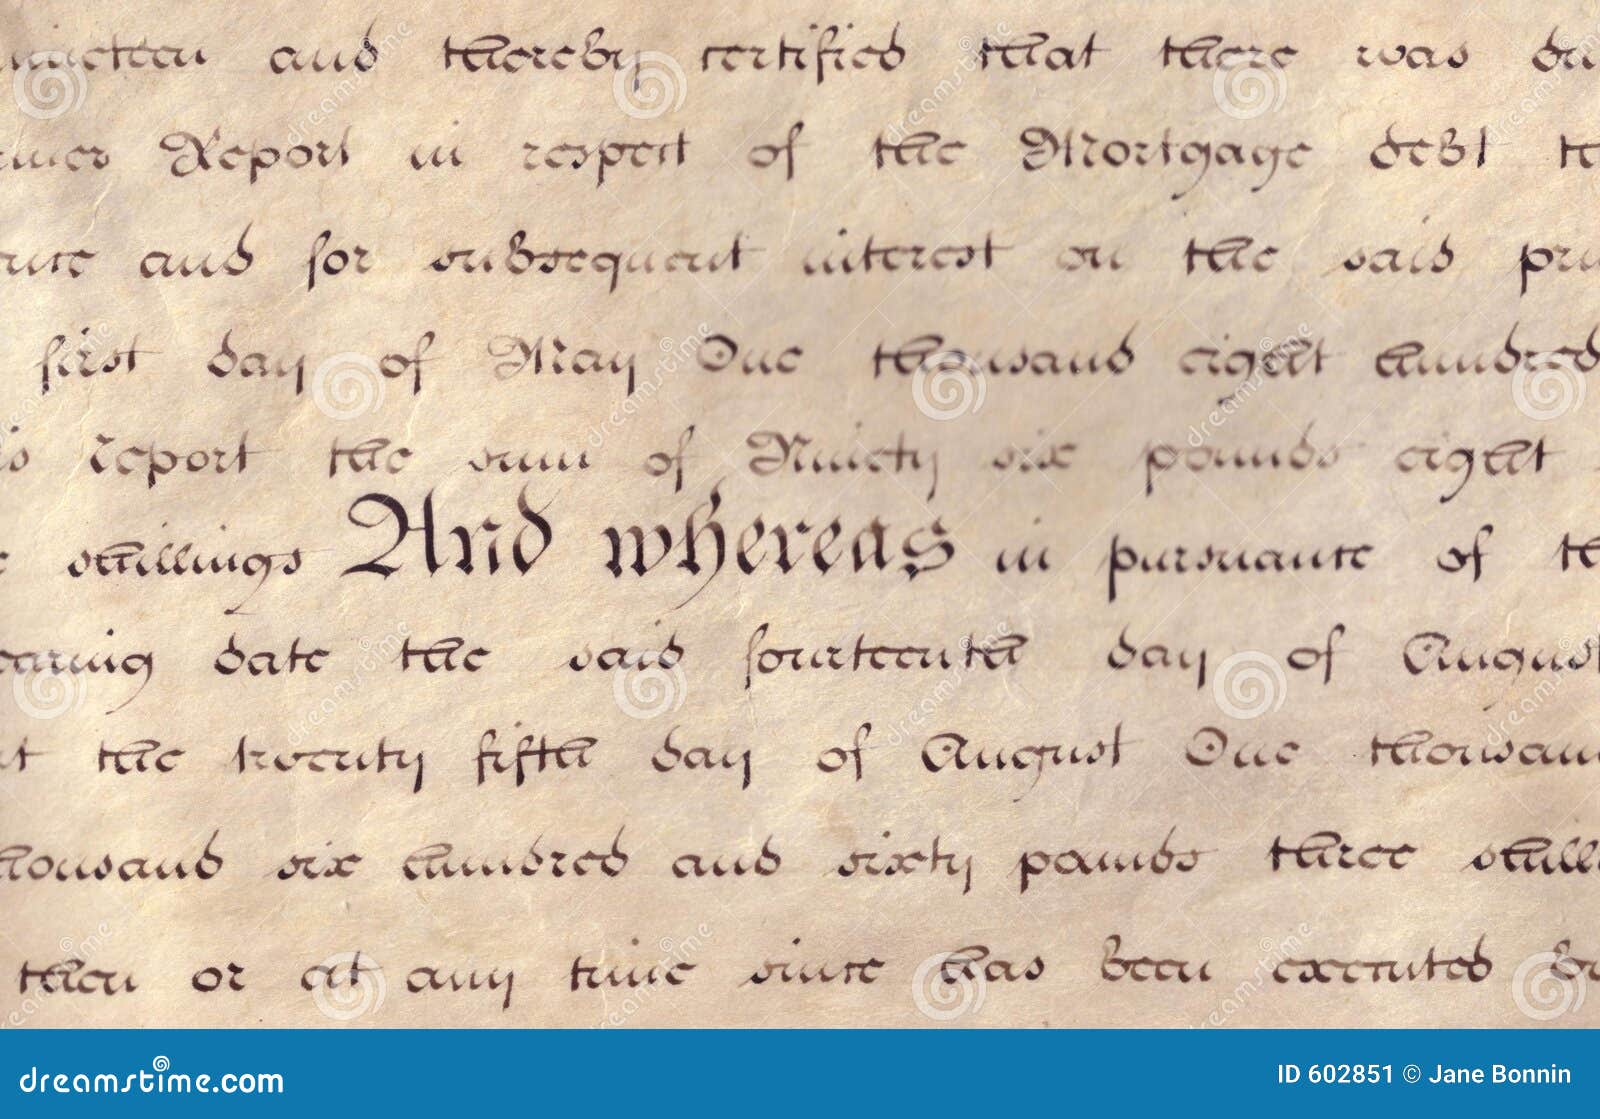 nineteen and thereby certified that there was du
ner Report in respect of the Mortgage debt te
ture and for subsequent interest on the said prin
first day of May One thousand eight hundred
is report the sum of Ninety six pounds eight
shillings And whereas in pursuance of th
earing date the said fourteenth day of August
at the twenty fifth day of August One thousan
housand six hundred and sixty pounds three shill
then or at any time since has been executed by
dreamstime.com
ID 602851 © Jane Bonnin